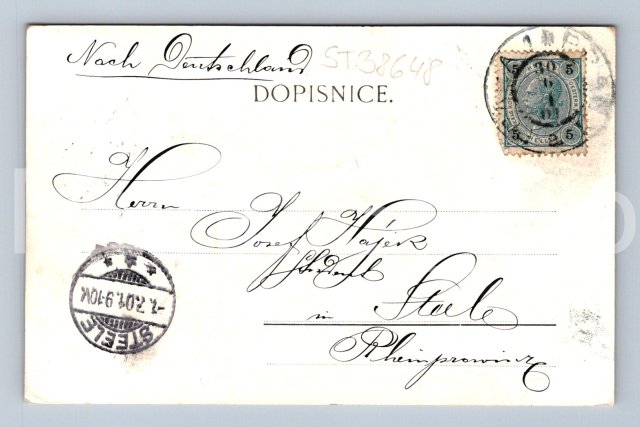 Nach Deutschland
ST38648
DOPISNICE.
5 5
5 5
30
Herrn
Josef Hájek
Student
in Steele
Rheinprovinz
STEELE
-1.7.01.9-10V.